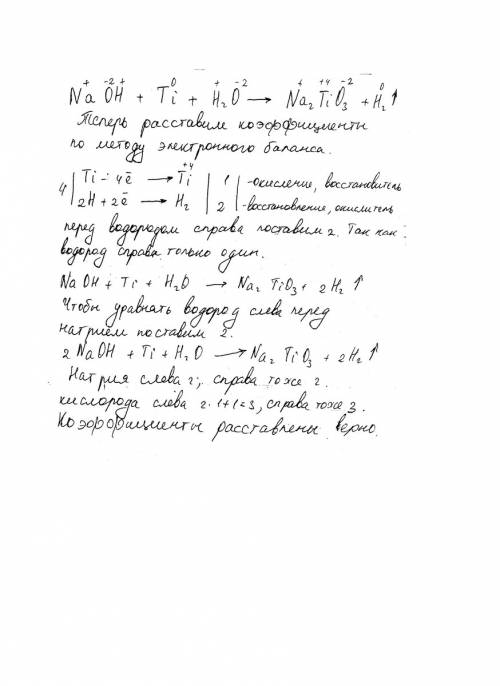 + -2 + 0 + -2 + +4 -2 0
NaOH + Ti + H₂O → Na₂TiO₃ + H₂↑
Теперь расставим коэффициенты
по методу электронного баланса.
+4
4 | Ti - 4ē → Ti | 1 | -окисление, восстановитель
2H + 2ē → H₂ | 2 | -восстановление, окислитель
перед водородом справа поставим 2. Так как
водород справа только один.
NaOH + Ti + H₂O → Na₂TiO₃ + 2H₂↑
Чтобы уравнять водород слева перед
натрием поставим 2.
2NaOH + Ti + H₂O → Na₂TiO₃ + 2H₂↑
Натрия слева 2; справа тоже 2.
кислорода слева 2·1+1=3, справа тоже 3.
Коэффициенты расставлены верно.